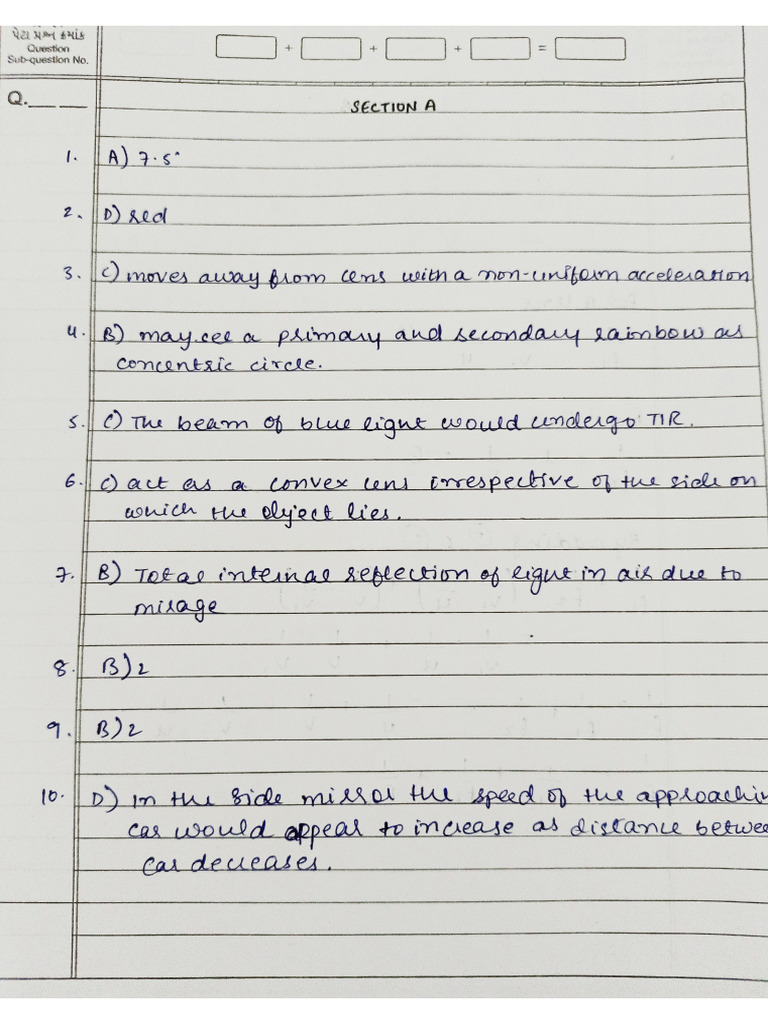 પેટા પ્રશ્ન ક્રમાંક
Question
Sub-question No.
+ + + =
Q.
SECTION A
1. A) 7.5°
2. D) red
3. C) moves away from lens with a non-uniform acceleration
4. B) may see a primary and secondary rainbow as
concentric circle.
5. C) The beam of blue light would undergo TIR.
6. C) act as a convex lens irrespective of the side on
which the object lies.
7. B) Total internal reflection of light in air due to
mirage
8. B) 2
9. B) 2
10. D) In the side mirror the speed of the approachin
car would appear to increase as distance betwee
car decreases.